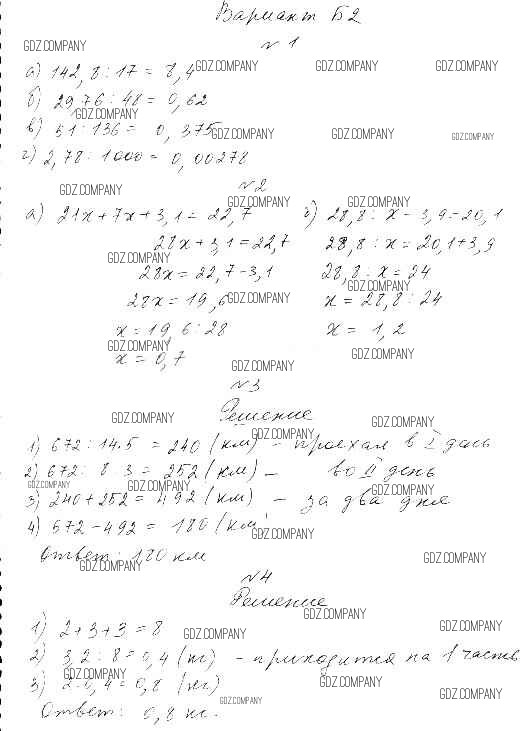 Вариант Б2
№ 1
GDZ.COMPANY
а) 142,8 : 17 = 8,4 GDZ.COMPANY GDZ.COMPANY GDZ.COMPANY
б) 29,76 : 48 = 0,62
GDZ.COMPANY
в) 51 : 136 = 0,375 GDZ.COMPANY GDZ.COMPANY GDZ.COMPANY
г) 2,78 : 1000 = 0,00278
№2
GDZ.COMPANY GDZ.COMPANY GDZ.COMPANY
а) 21x + 7x + 3,1 = 22,7 б) 28,8 : x - 3,9 = 20,1
28x + 3,1 = 22,7 28,8 : x = 20,1 + 3,9
GDZ.COMPANY
28x = 22,7 - 3,1 28,8 : x = 24
GDZ.COMPANY
28x = 19,6 GDZ.COMPANY x = 28,8 : 24
x = 19,6 : 28 x = 1,2
GDZ.COMPANY GDZ.COMPANY
x = 0,7 GDZ.COMPANY
№3
Решение
GDZ.COMPANY GDZ.COMPANY
GDZ.COMPANY
1) 672 : 14 · 5 = 240 (км) - проехал в I день
2) 672 : 8 · 3 = 252 (км) - во II день
GDZ.COMPANY GDZ.COMPANY GDZ.COMPANY
3) 240 + 252 = 492 (км) - за два дня
4) 672 - 492 = 180 (км)
GDZ.COMPANY
Ответ: 180 км
GDZ.COMPANY GDZ.COMPANY
№4
Решение
GDZ.COMPANY
1) 2 + 3 + 3 = 8 GDZ.COMPANY GDZ.COMPANY
2) 3,2 : 8 = 0,4 (кг) - приходится на 1 часть
GDZ.COMPANY
3) 2 · 0,4 = 0,8 (кг) GDZ.COMPANY GDZ.COMPANY
Ответ: 0,8 кг. GDZ.COMPANY